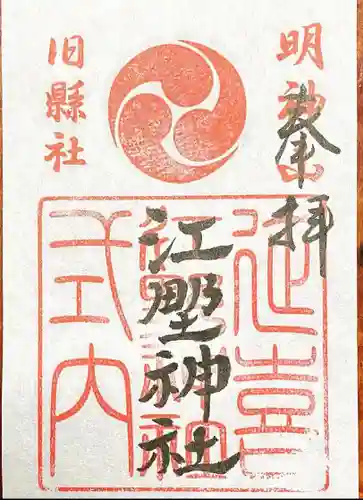 明神山
奉拝
江野神社
旧縣社
延喜
式内